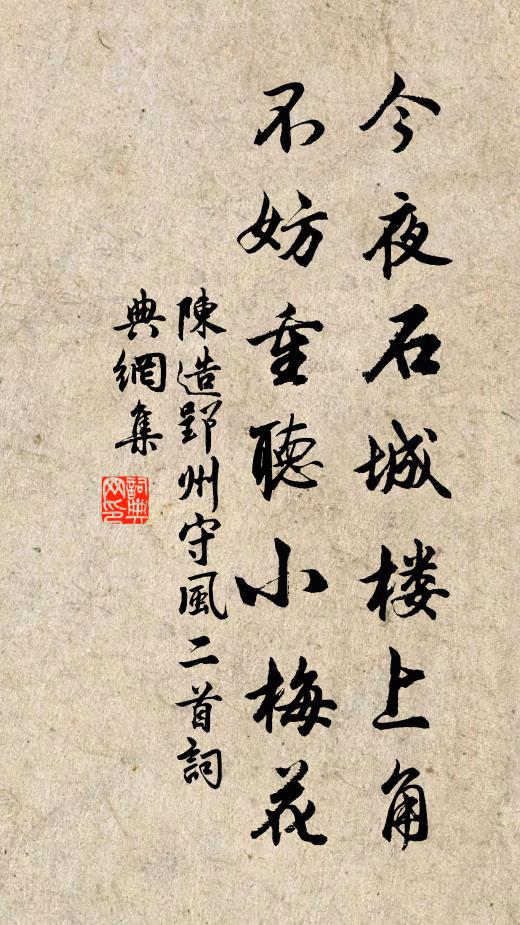 今夜石城楼上角
不妨重聽小梅花
陳造郢州守風二首詞
典網集
詞典網印